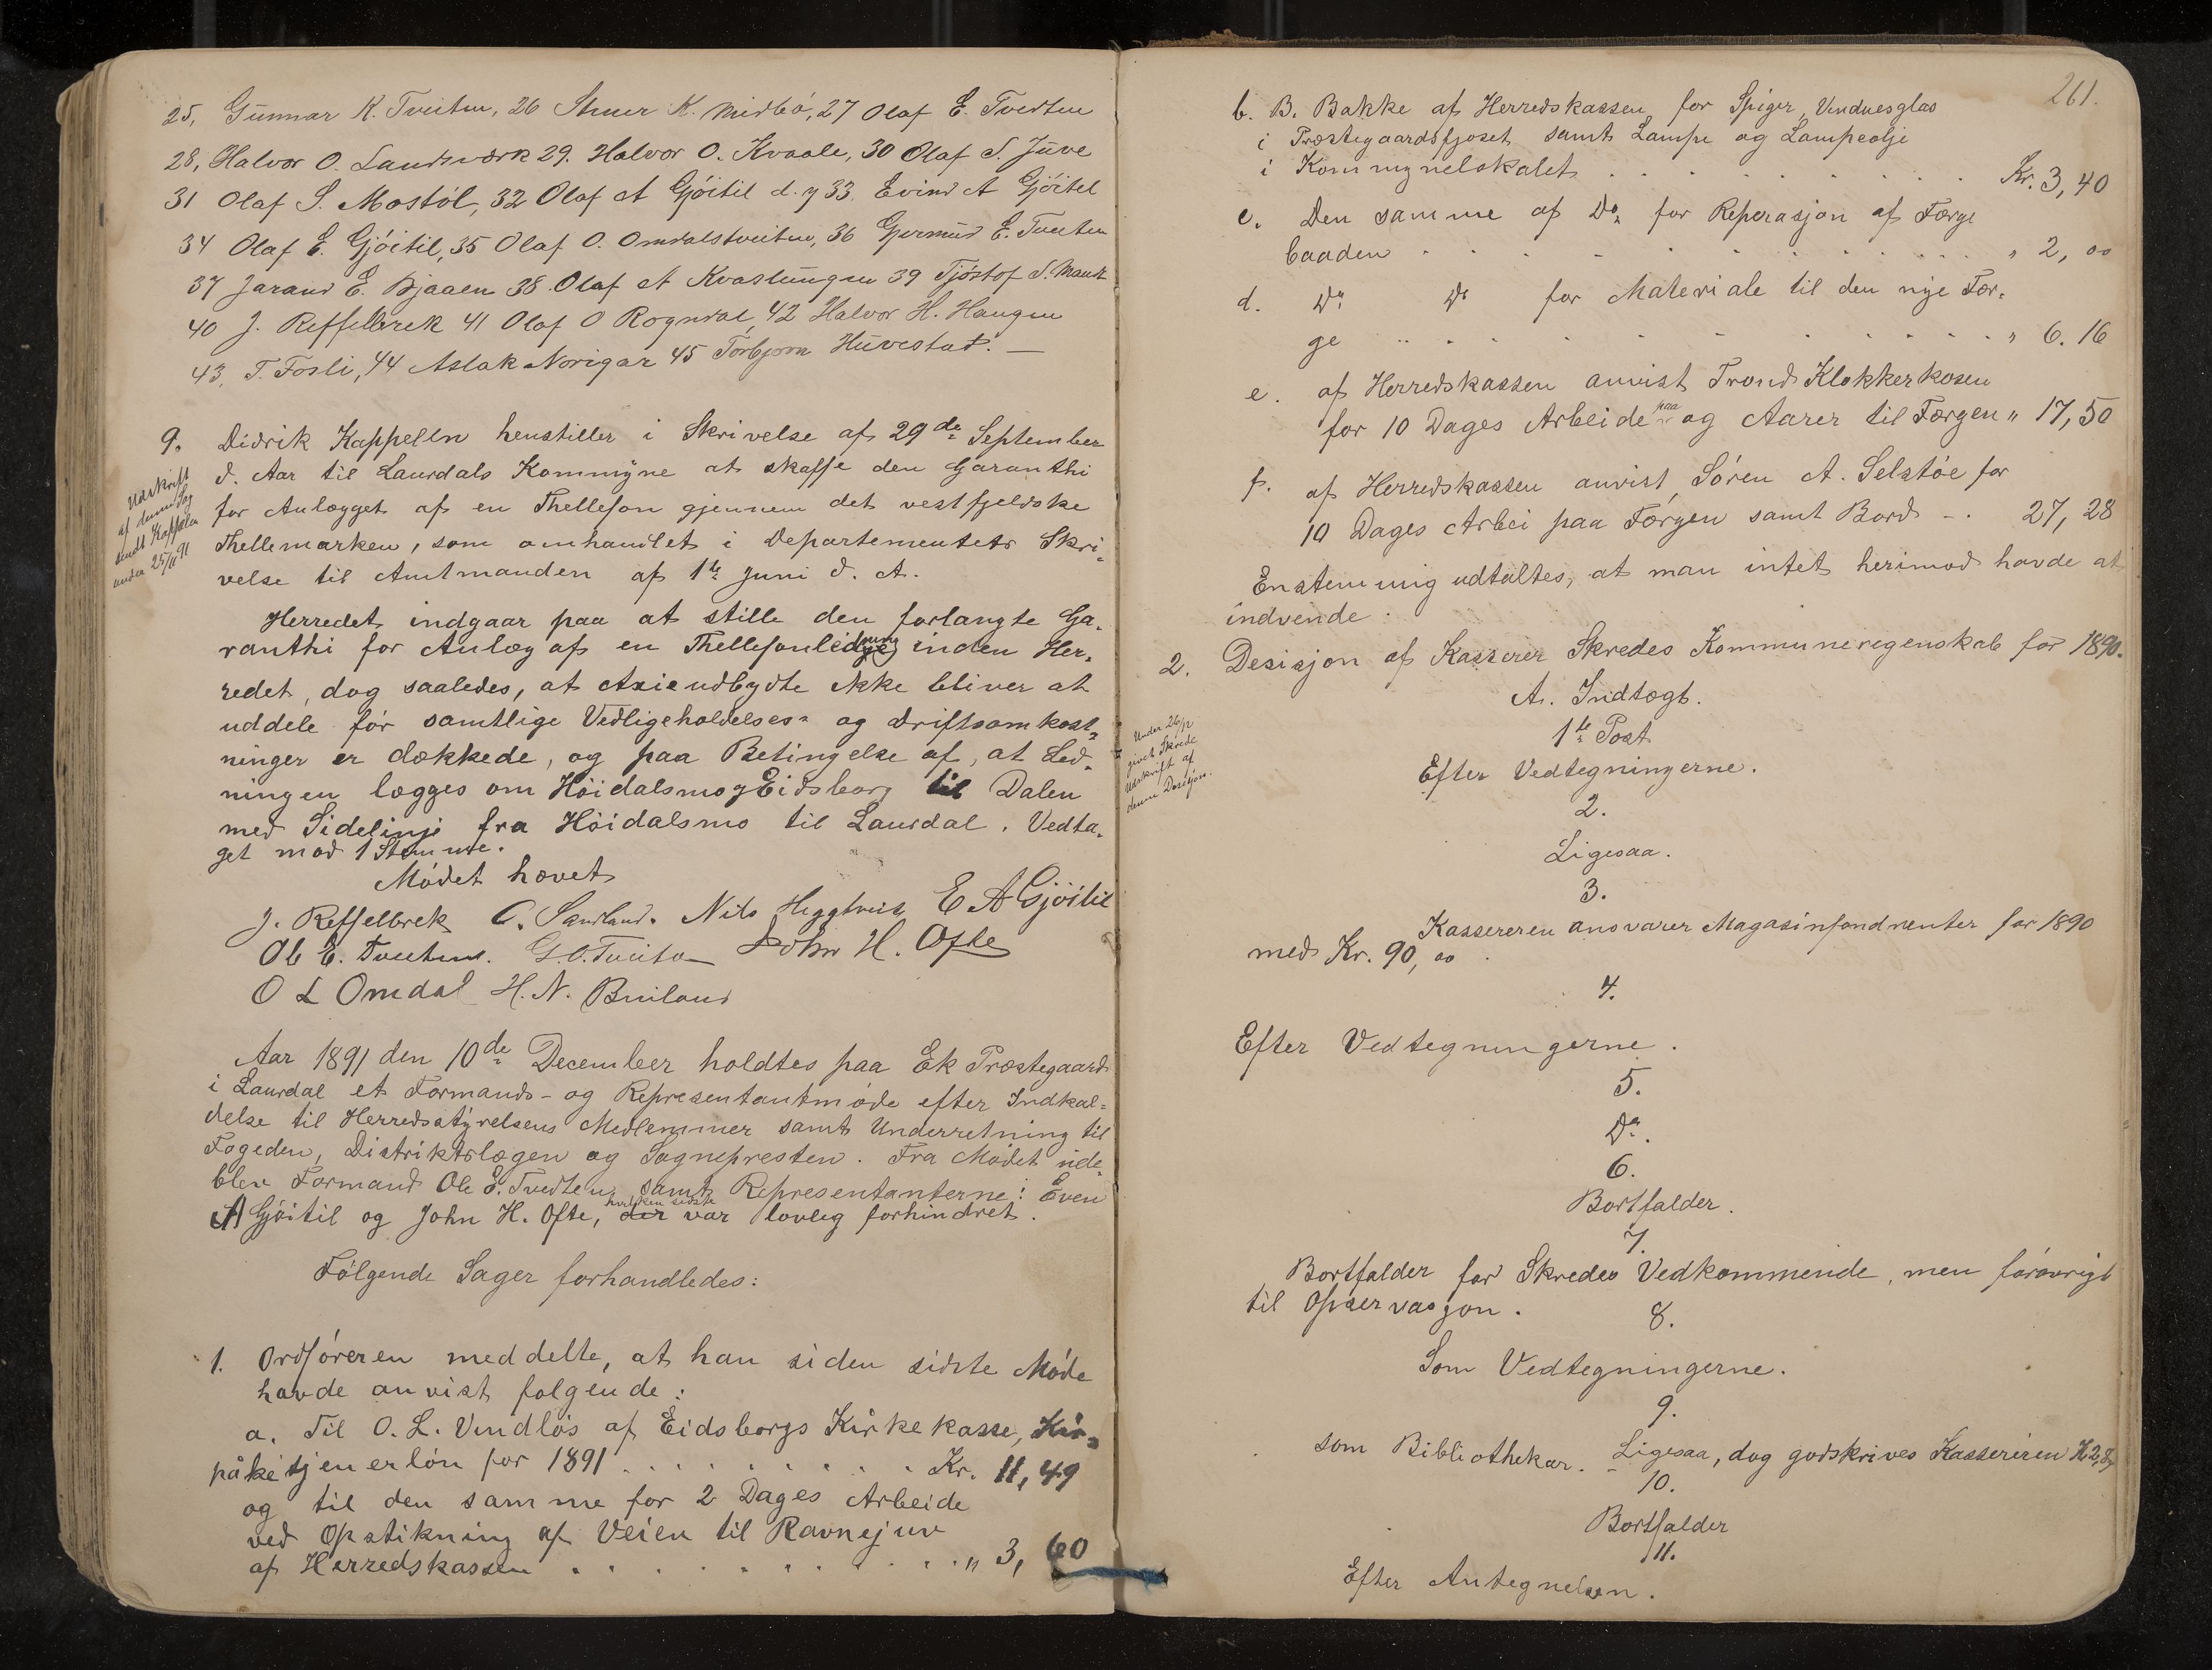 25, Gunnar K. Tveiten, 26 Stener K. Midbö, 27 Olaf E. Tveiten
28, Halvor O. Landsværk 29. Halvor O. Kvaale, 30 Olaf S. Juve
31 Olaf S. Mostöl, 32 Olaf A Gjöitil d. y 33. Evind A Gjöitil
34 Olaf E. Gjöitil, 35 Olaf O. Omdalstveiten, 36 Germund E. Tveiten
37 Jarand E. Bjaaen 38. Olaf A Kvastungen 39 Tjöstof S.
40 J. Reffelbrek 41 Olaf O Rogndal, 42 Halvor H. Haugen
43. T. Fosli, 44 Aslak Norigar 45 Torbjorn Huvestad. —
9. Didrik Kappelen henstiller i Skrivelse af 29de September
d. Aar til Laurdals Kommyne at skaffe den Garanthi
for Anlægget af en Thellefon gjennem det vestfjeldske
Thellemarken, som omhandlet i Departementets Skri-
velse til Amtmanden af 1te Juni d. A.
Udskrift
af denne Sag
sendt Kappelen
under 25/11 91
Herredet indgaar paa at stille den forlangte Ga-
ranthi for Anlæg af en Thellefonledning inden Her-
redet, dog saaledes, at Axieudbydte ikke bliver at
uddele för samtlige Vedligeholdelses- og Driftsomkost-
ninger er dækkede, og paa Betingelse af, at Led-
ningen lægges om Höidalsmo og Eidsborg til Dalen
med Sidelinje fra Höidalsmo til Laurdal. Vedta-
get mod 1 Stemme.
Mödet hævet
J. Reffelbrek O. Saurland. Nils Heggtveit E A Gjöitil
Ol E. Tveiten. G. O. Tveito John H. Ofte
O L Omdal H. N. Bruland
Aar 1891 den 10de December holdtes paa Ek Præstegaard
i Laurdal et Formands- og Representantmöde efter Indkal-
delse til Herredsstyrelsens Medlemmer samt Underretning til
Fogeden, Distriktslægen og Sognepresten. Fra Mödet ude-
blev Formand Ole E. Tvedten samt Representanterne: Even
A Gjöitil og John H. Ofte, hvilken sidste var lovlig forhindret.
Fölgende Sager forhandledes:
1. Ordföreren meddelte, at han siden sidste Möde
havde anvist folgende:
a. Til O. L. Vindlös af Eidsborgs Kirkekasse, Kir-
påketjenerlön for 1891 . . . . . . . . . Kr. 11,49
og til den samme for 2 Dages Arbeide
ved Opstikning af Veien til Ravnejuv
af Herredskassen . . . . . . . . . " 3, 60
261.
b. B. Bakke af Herredskassen for Spiger, Vinduesglas
i Præstegaardsfjoset samt Lampe og Lampeolje
i Kommynelokalet . . . . . . . . . Kr. 3, 40
c. Den samme af Do. for Reperasjon af Færge
baaden . . . . . . . . . " 2, 00
d. Do. Do for Materiale til den nye Fær-
ge . . . . . . . . . " 6. 16
e. af Herredskassen anvist Trond Klokkerkosen
for 10 Dages Arbeide paa og Aarer til Færgen " 17, 50
f. af Herredskassen anvist Sören A. Selstöe for
10 Dages Arbei paa Færgen samt Bord - . 27, 28
Enstemmig udtaltes, at man intet herimod havde at
indvende.
2. Desisjon af Kasserer Skredes Kommuneregenskab for 1890.
Under 26/12
givet Skrede
Udskrift af
denne Desisjon.
A. Indtægt.
1te Post
Efter Vedtegningerne.
2.
Ligesaa.
3.
Kassereren ansvarer Magasinfondrenter for 1890
med Kr. 90, 00
4.
Efter Vedtegningerne.
5.
Do.
6.
Bortfalder.
7.
Bortfalder for Skredes Vedkommende, men forövrigt
til Opservasjon.
8.
Som Vedtegningerne.
9.
Ligesaa, dog godskrives Kassereren K 2,
som Bibliothekar.
10.
Bortfalder
11.
Efter Antegnelsen.